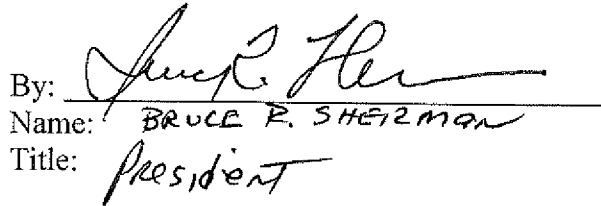 By:
Name: BRUCE R. SHERMAN
Title: President